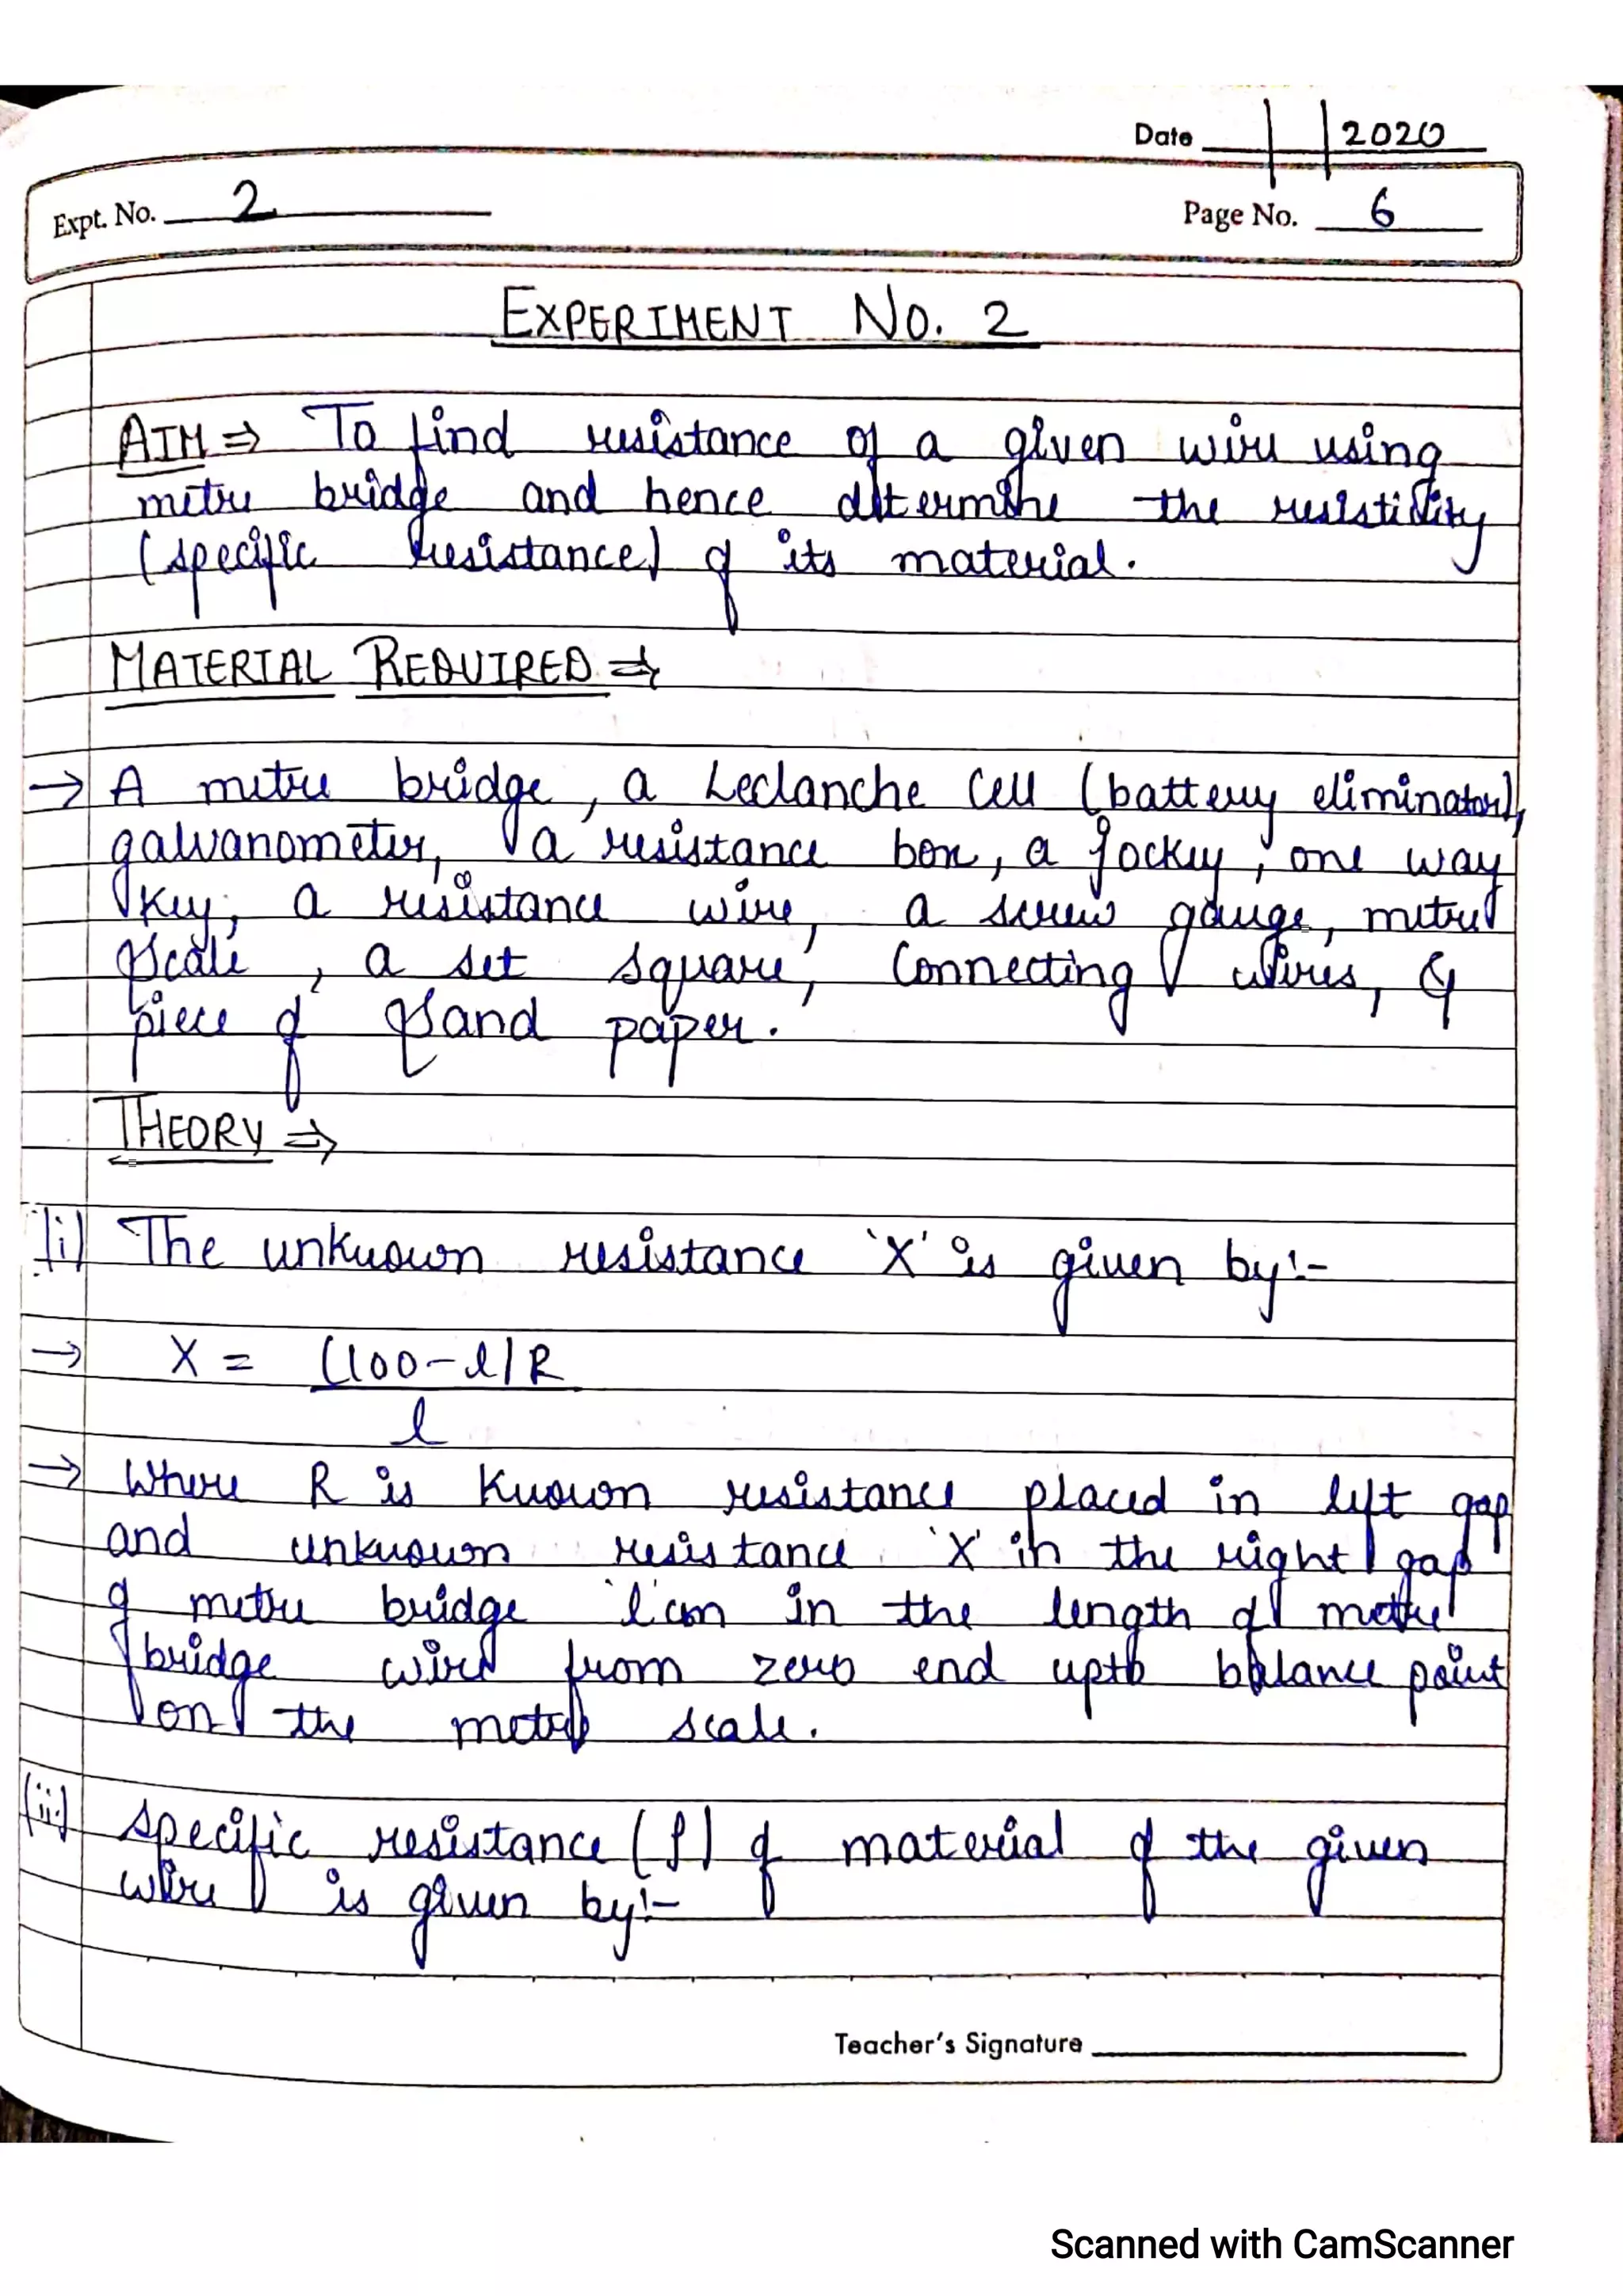 Date 2020
Expt. No. 2
Page No. 6
EXPERIMENT No. 2
AIM ⇒ To find resistance of a given wire using
metre bridge and hence determine the resistivity
(specific resistance) of its material.
MATERIAL REQUIRED ⇒
→ A metre bridge, a Leclanche cell (battery eliminator),
galvanometer, a resistance box, a jockey, one way
key, a resistance wire, a screw gauge, metre
scale, a set square, connecting wires, &
piece of sand paper.
THEORY ⇒
(i) The unknown resistance 'X' is given by:-
→ X = (100-l)R
l
→ Where R is known resistance placed in left gap
and unknown resistance 'X' in the right gap
of metre bridge 'l' cm in the length of metre
bridge wire from zero end upto balance point
on the metre scale.
(ii) specific resistance (ρ) of material of the given
wire is given by:-
Teacher's Signature
Scanned with CamScanner